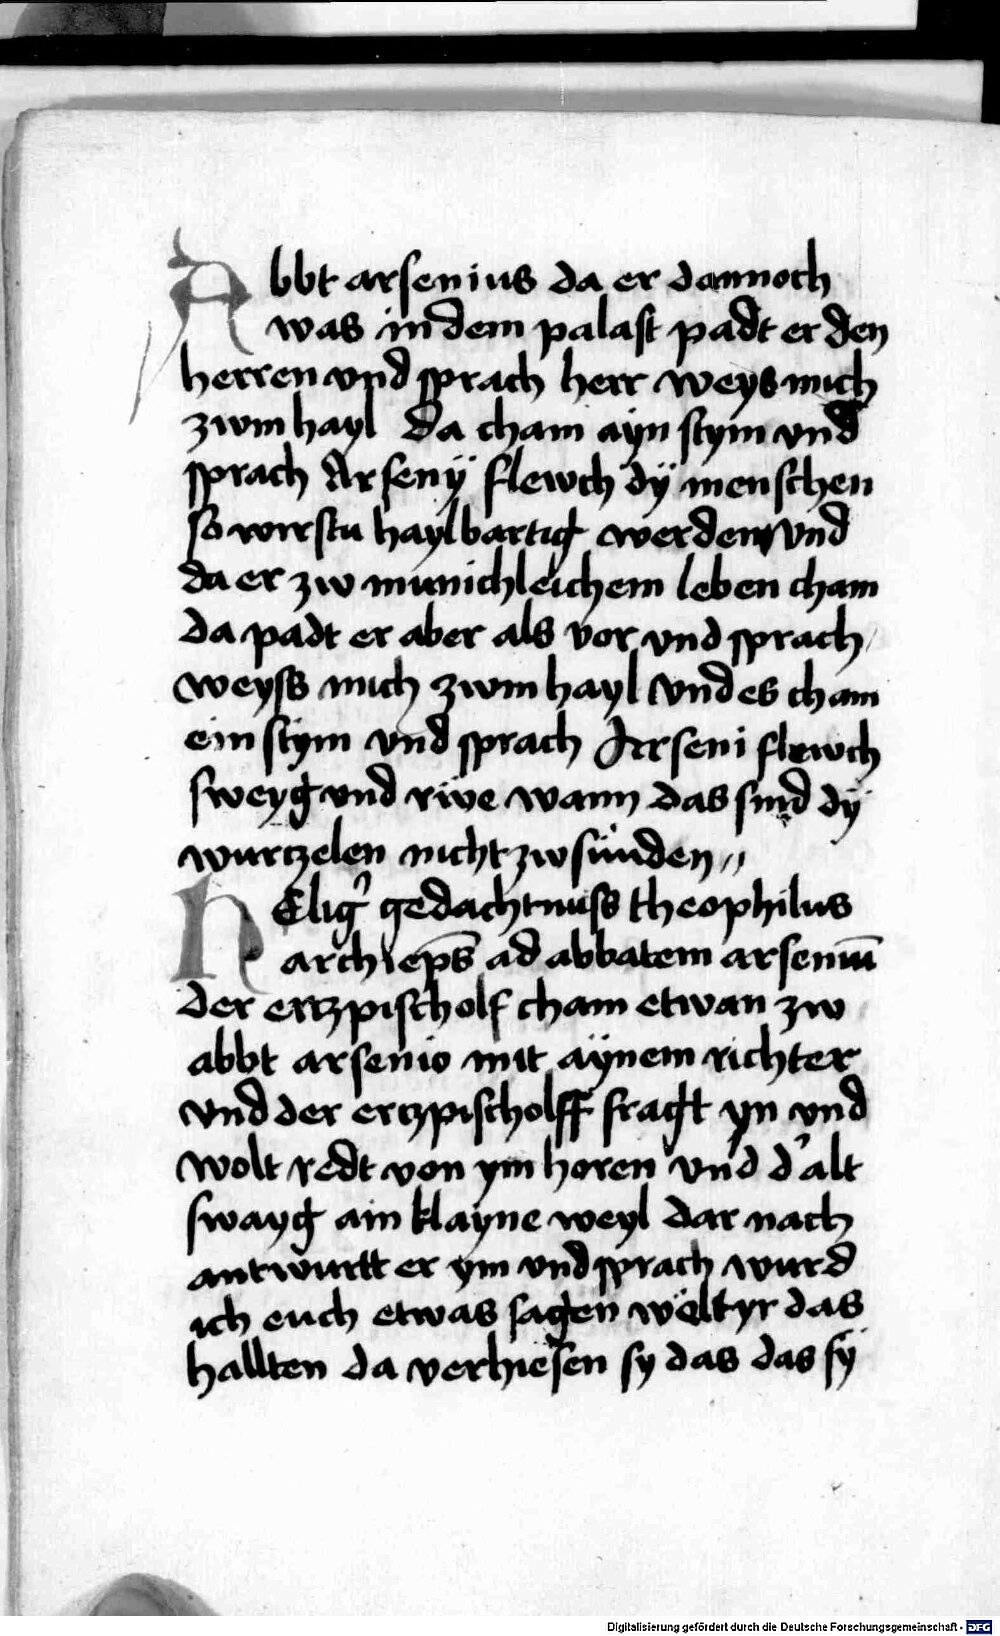 Abbt arsenius da er dannoch
was in dem palast padt er den
herren vnd sprach herr weys mich
zwm hayl da cham ayn stym vnd
sprach Arsenÿ flewch dÿ menschen
so wirstu haylbartig werden vnd
da er zw munichleichem leben cham
da padt er aber als vor vnd sprach
weyss mich zwm hayl vnd es cham
ein stym vnd sprach Arseni flewch
sweyg vnd rwe wann das sind dÿ
wurtzelen nicht zw sünden //
HElig' gedachtnuss theophilus
archiep̄s ad abbatem arseniū
der ertzpischolf cham etwan zw
abbt arsenio mit aÿnem richter
vnd der ertzpischolff fragt yn vnd
wolt redt von ym horen vnd d' alt
swayg ain klayne weyl dar nach
antwurtt er ym vnd sprach wurd
ich euch etwas sagen wölt yr das
hallten da verhiesen sy das das sÿ
Digitalisierung gefördert durch die Deutsche Forschungsgemeinschaft - DFG